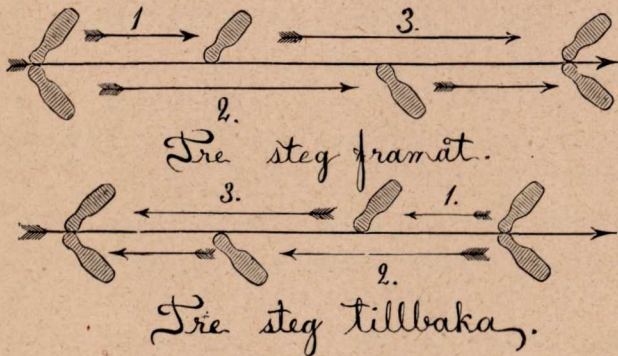 1 3.
2.
Tre steg framåt.
3. 1.
2.
Tre steg tillbaka.